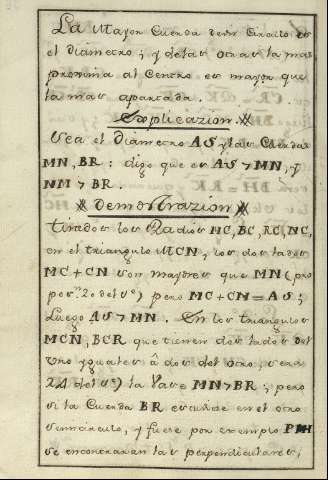 La Mayor Cuerda de un Circulo es
el diametro; y de las otras la mas
proxima al Centro es mayor que
la mas apartada.
Explicazion.
Sea el Diametro AS y las Cuerdas
MN, BR: digo que es AS > MN, y
NM > BR.
Demostrazion
tirados los Radios MC, BC, RC, NC,
en el triangulo MCN, los dos lados
MC + CN son mayores que MN (pro
pos.n 20 del 1.o) pero MC + CN = AS;
Luego AS > MN. En los triangulos
MCN, BCR que tienen dos lados del
uno yguales â dos del otro, sera
24 del 1.o) la Vase MN > BR; pero
si la Cuerda BR en el otro
semicirculo, y fuese por exemplo PH
se encontraran las perpendiculares,